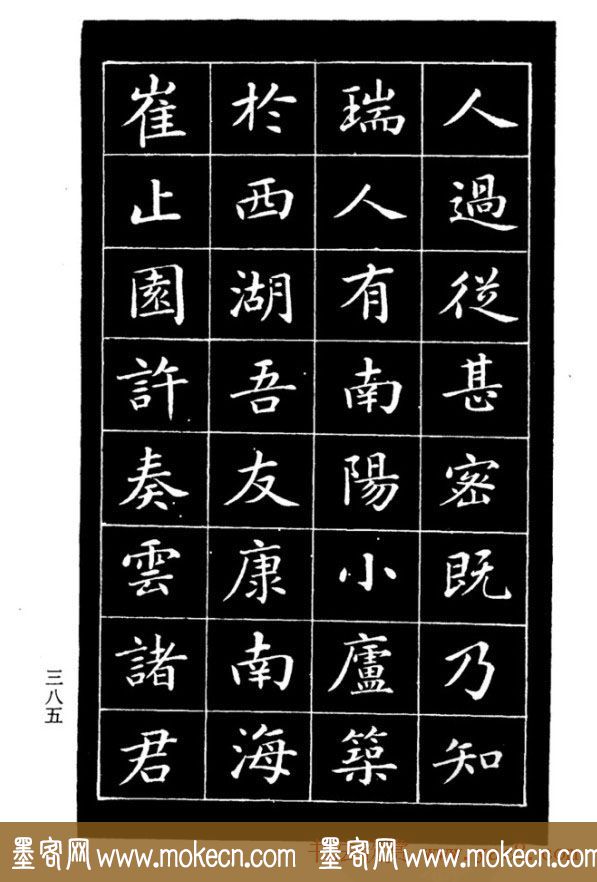 人過從甚密既乃知
瑞人有南陽小廬築
於西湖吾友康南海
崔止園許奏雲諸君
三八五
墨客网 www.mokecn.com 墨客网 www.mokecn.com